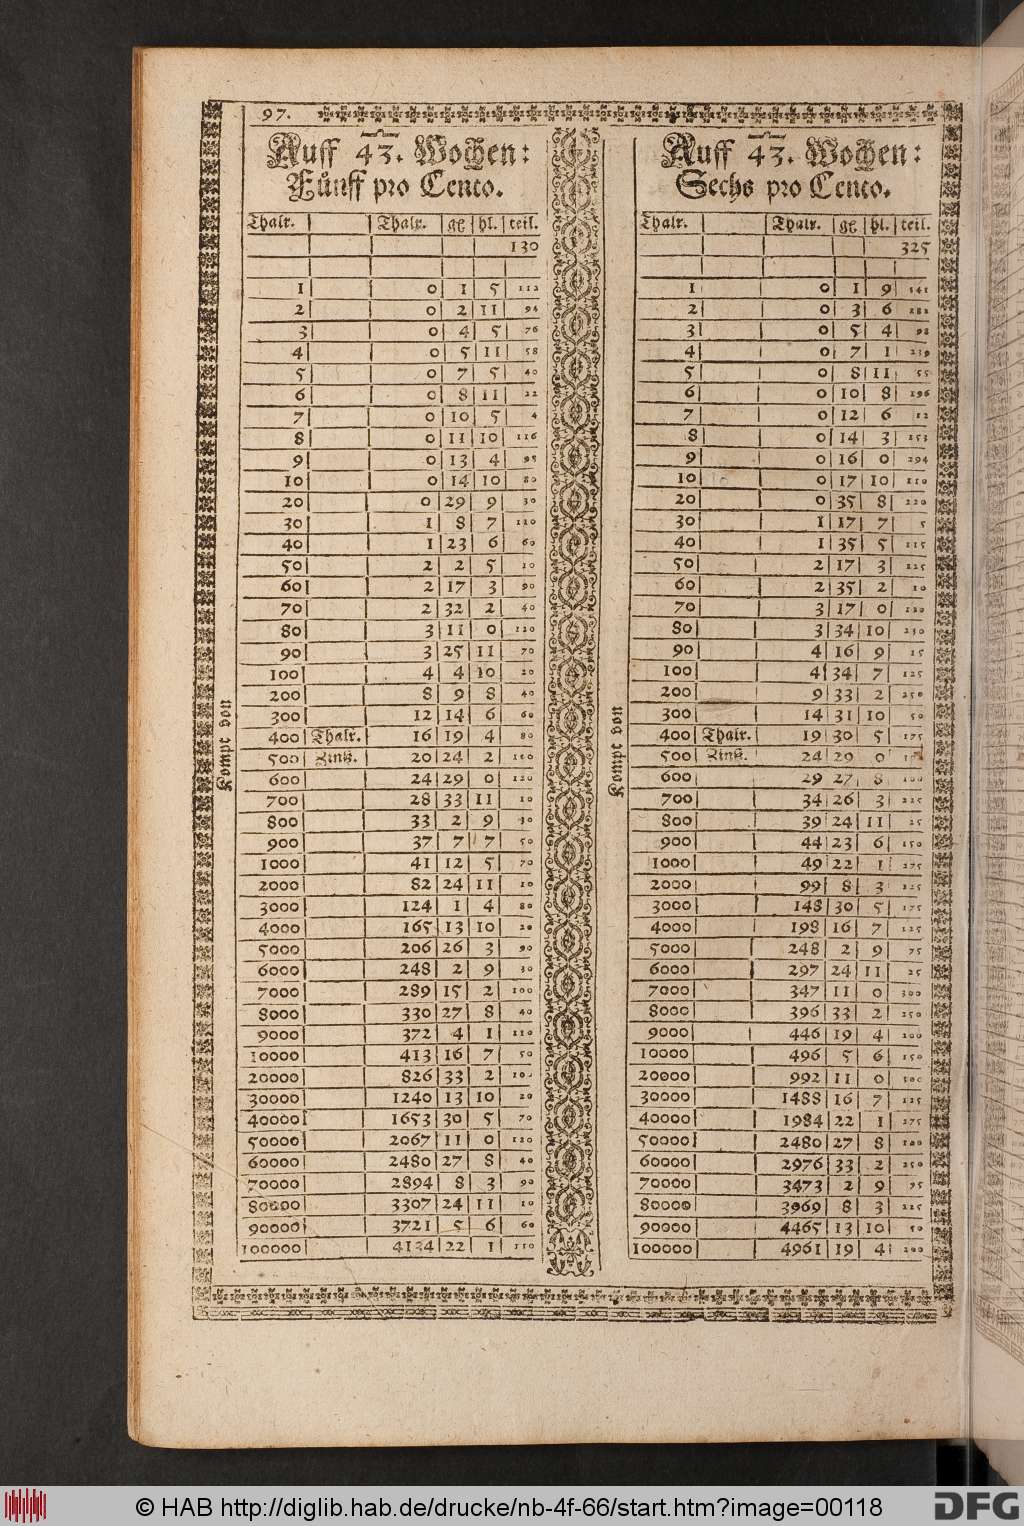 97.
Auff 43. Wochen:
Fůnff pro Cento.
Thalr. Thalr. gℓ hl. teil.
130
1 0 1 5 112
2 0 2 11 94
3 0 4 5 76
4 0 5 11 58
5 0 7 5 40
6 0 8 11 22
7 0 10 5 4
8 0 11 10 116
9 0 13 4 98
10 0 14 10 80
20 0 29 9 30
30 1 8 7 110
40 1 23 6 60
50 2 2 5 10
60 2 17 3 90
70 2 32 2 40
80 3 11 0 120
90 3 25 11 70
100 4 4 10 20
200 8 9 8 40
300 12 14 6 60
400 Thalr. 16 19 4 80
500 Zinß. 20 24 2 100
600 24 29 0 120
700 28 33 11 10
800 33 2 9 30
900 37 7 7 50
1000 41 12 5 70
2000 82 24 11 10
3000 124 1 4 80
4000 165 13 10 20
5000 206 26 3 90
6000 248 2 9 30
7000 289 15 2 100
8000 330 27 8 40
9000 372 4 1 110
10000 413 16 7 50
20000 826 33 2 100
30000 1240 13 10 20
40000 1653 30 5 70
50000 2067 11 0 120
60000 2480 27 8 40
70000 2894 8 3 90
80000 3307 24 11 10
90000 3721 5 6 60
100000 4134 22 1 110
Kompt von
Auff 43. Wochen:
Sechs pro Cento.
Thalr. Thalr. gℓ hl. teil.
325
1 0 1 9 141
2 0 3 6 282
3 0 5 4 98
4 0 7 1 239
5 0 8 11 55
6 0 10 8 196
7 0 12 6 12
8 0 14 3 153
9 0 16 0 294
10 0 17 10 110
20 0 35 8 220
30 1 17 7 5
40 1 35 5 115
50 2 17 3 225
60 2 35 2 10
70 3 17 0 120
80 3 34 10 230
90 4 16 9 15
100 4 34 7 125
200 9 33 2 250
300 14 31 10 50
400 Thalr. 19 30 5 175
500 Zinß. 24 29 0
600 29 27 8 100
700 34 26 3 225
800 39 24 11 25
900 44 23 6 150
1000 49 22 1 275
2000 99 8 3 225
3000 148 30 5 175
4000 198 16 7 125
5000 248 2 9 75
6000 297 24 11 25
7000 347 11 0 300
8000 396 33 2 250
9000 446 19 4 200
10000 496 5 6 150
20000 992 11 0 300
30000 1488 16 7 125
40000 1984 22 1 275
50000 2480 27 8 100
60000 2976 33 2 250
70000 3473 2 9 75
80000 3969 8 3 225
90000 4465 13 10 50
100000 4961 19 4 200
Kompt von
© HAB http://diglib.hab.de/drucke/nb-4f-66/start.htm?image=00118
DFG